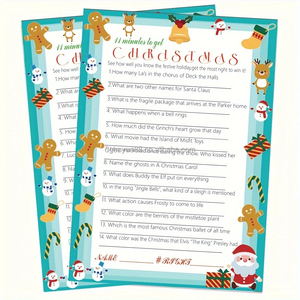 14 minutes to get
CHRISTMAS
See how well you know the festive holiday get the most right to win!
1.How many La's in the chorus of Deck the Halls
2.What are two other names for Santa Claus
3.What is the fragile package that arrives at the Parker home
4.What happens when a bell rings
5.How much did the Grinch's heart grow that day
6.What movie had the Island of Misfit Toys
Who kissed her
8.Name the ghosts in A Christmas Carol
9.What does Buddy the Elf put on everything
10.in the song "Jingle Bells", what kind of a sleigh is mentioned
11.What action causes Frosty to come to life
12.What color are the berries of the mistletoe plant
13.Which is the most famous Christmas ballet of all time
14.What color was the Christmas that Elvis "The King" Presley had
NAME #RIGHT